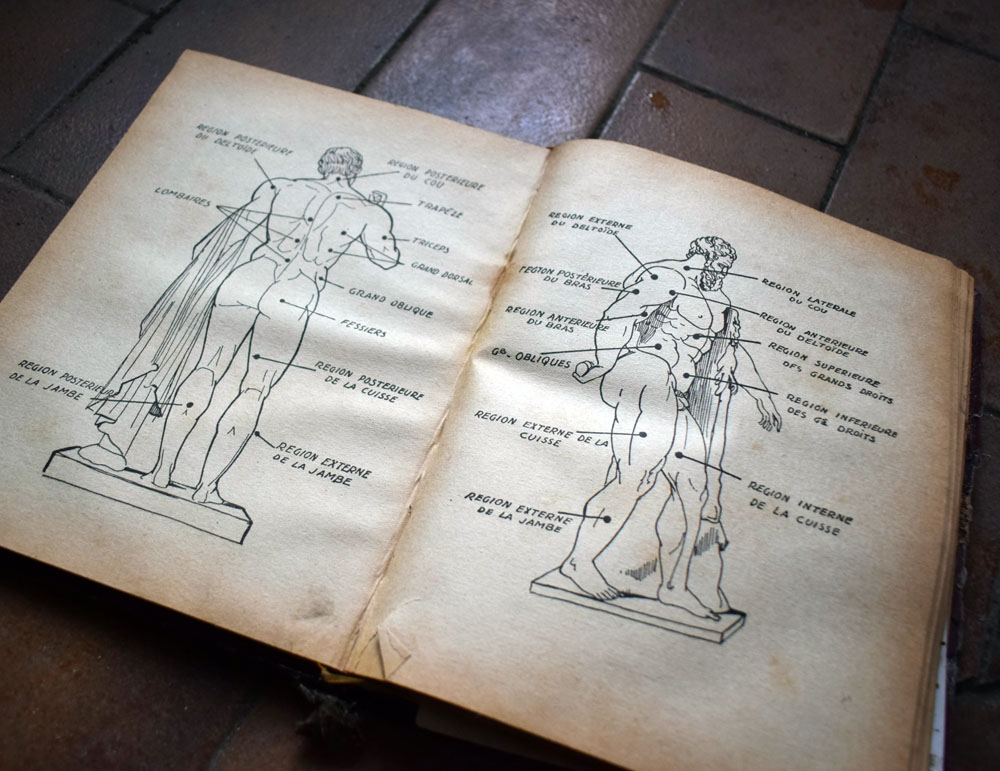 REGION POSTERIEURE
DU DELTOÏDE
REGION POSTERIEURE
DU COU
LOMBAIRES
TRAPÈZE
TRICEPS
GRAND DORSAL
GRAND OBLIQUE
FESSIERS
REGION POSTERIEURE
DE LA JAMBE
REGION POSTERIEURE
DE LA CUISSE
REGION EXTERNE
DE LA JAMBE
REGION EXTERNE
DU DELTOÏDE
REGION POSTÈRIEURE
DU BRAS
REGION ANTERIEURE
DU BRAS
Gds. OBLIQUES
REGION EXTERNE DE LA
CUISSE
REGION EXTERNE
DE LA JAMBE
REGION LATERALE
DU COU
REGION ANTERIEURE
DU DELTOÏDE
REGION SUPERIEURE
DES GRANDS DROITS
REGION INFERIEURE
DES Gds DROITS
REGION INTERNE
DE LA CUISSE